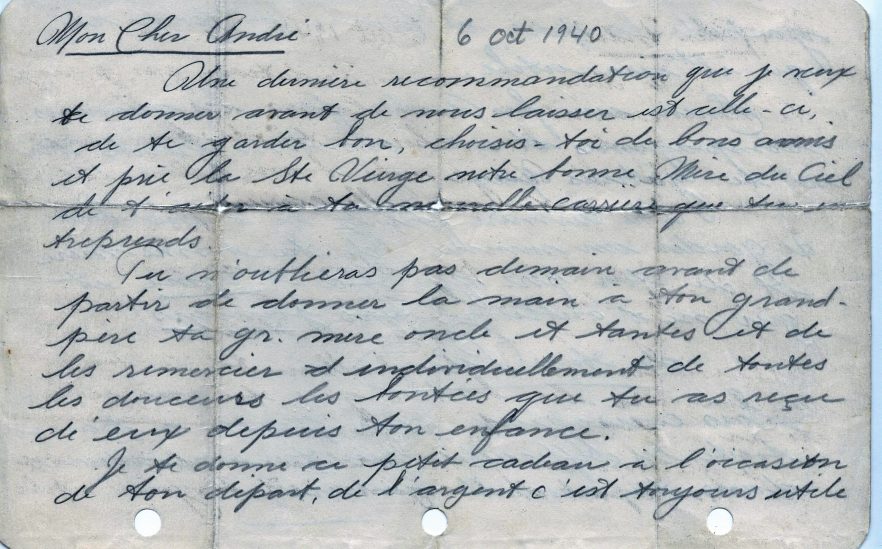 Mon Cher André 6 oct 1940
Une dernière recommandation que je veux
te donner avant de nous laisser est celle-ci,
de te garder bon, choisis-toi de bons amis
et prie la Ste Vierge notre bonne Mère du Ciel
de t'aider à ta nouvelle carrière que tu en
treprends.
Tu n'oublieras pas demain avant de
partir de donner la main à ton grand-
père ta gr. mère oncle et tantes et de
les remercier individuellement de toutes
les douceurs les bontées que tu as reçu
d'eux depuis ton enfance.
Je te donne ce petit cadeau à l'occasion
de ton départ, de l'argent c'est toujours utile